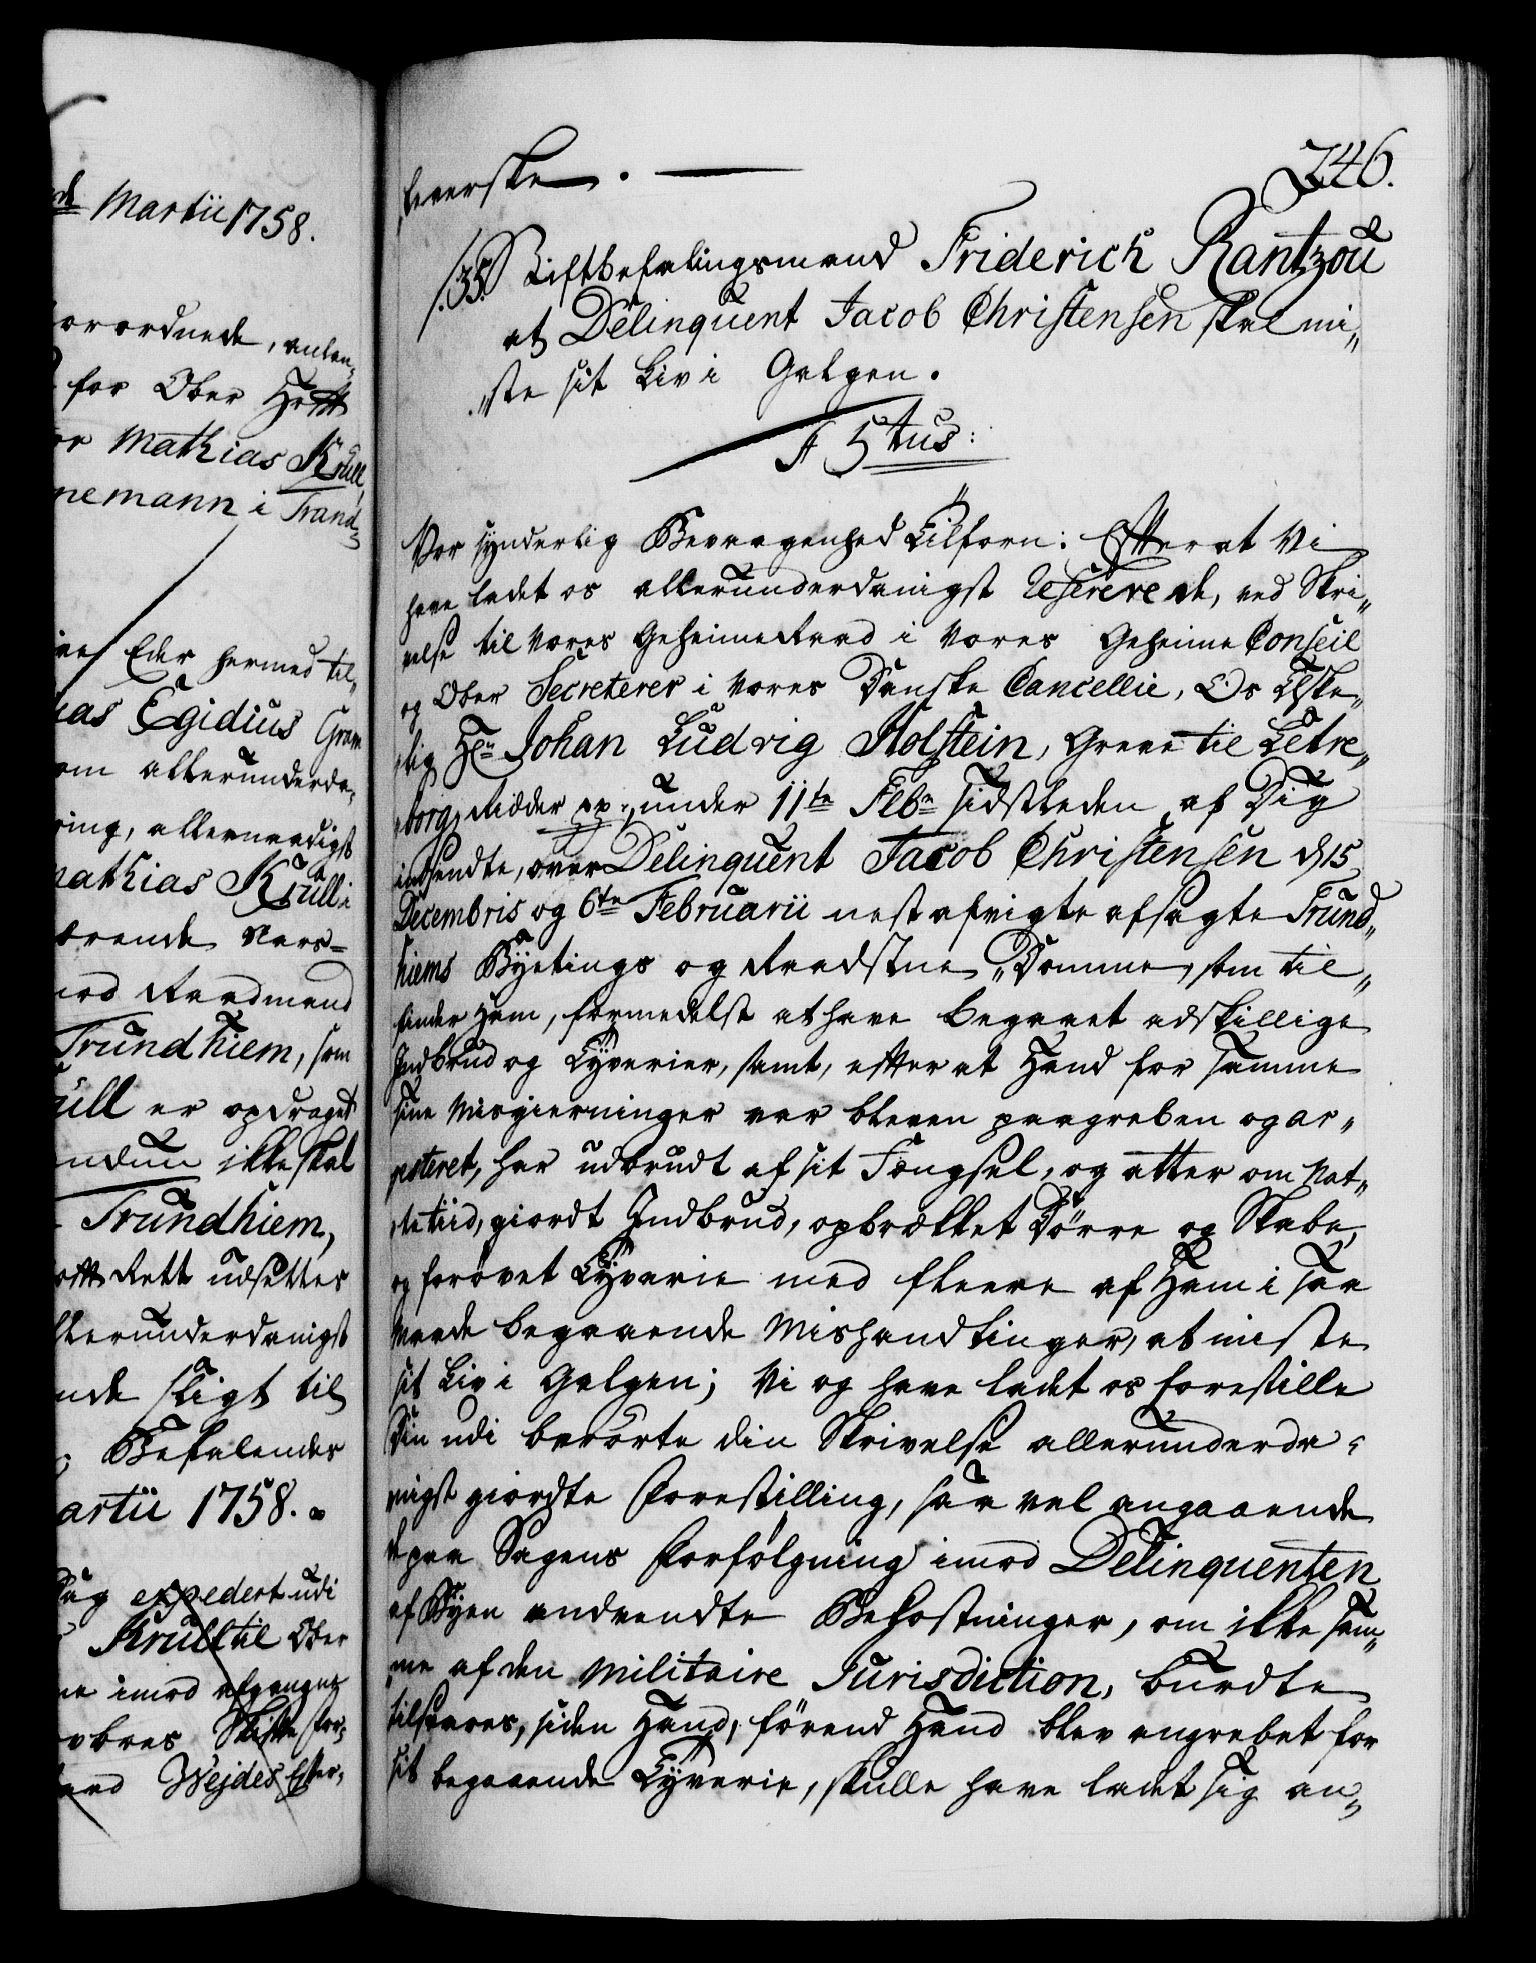 de Martii 1758.
orordnede, anlan„
for Ober Hoff
or Mathias Krüll,
nemann i Trond„
Eder hermed til„
as Egidius Gram
om allerunderda„
ring, allernaadigst
Mathias Krüll i
ærende Nærs=
mod Raadmand
Trundhiem, som
üll er opdraget
ikke skal
Trundhiem,
Rett udsetter
llerunderdanigst
nde sligt til
Befalendes
artii 1758.
Sag expedert udi
Krüll til Ober
ne imod afgangne
Skifte for„
Wejdes Efter„
246.
ske. —
35. Stiftbefalingsmand Friderich Rantzou
at Delinquent Jacob Christensen skal mi„
„ste sit Liv i Galgen.
F 5tus:
Vor synderlig Bevaagenhed Tilforn: Efter at Vi
have ladet os allerunderdanigst referere de, ved Skri„
velse til Vores Geheime Raad i Vores Geheime Conseil
og Ober Secreterer i Vores Danske Cancellie, Os Elske„
lig Hr. Johan Ludvig Holstein, Greve til Letre„
borg, Ridder pp., under 11te Febr. sidstleden af Dig
indsendte, over Delinquent Jacob Christensen d. 15
Decembris og 6te Februarii nest afvigte afsagte Trund„
hiems Byetings og Raadstue „Domme, som til„
finder Ham, formedelst at have begaaet adskillige
Indbrud og Tyverier, samt, efter at Hand for samme
sine Misgierninger var bleven paagreben og ar„
resteret, har udbrudt af sit Fengsel, og atter om Nat„
tetiid, giordt Indbrud, opbrækket Dørre og Skabe,
og forøvet Tyverie med fleere af Ham i saa
Maade begaaende Mishandlinger, at miste
sit Liv i Galgen; Vi og have ladet os forestille
Din udi berørte din Skrivelse allerunderda„
nigst giordte Forestilling, saa vel angaaende
de paa Sagens Forfølgning imod Delinquenten
af Byen anvendte Bekostninger, om ikke sam„
me af den Militaire Jurisdiction, burdte
tilsvares, siden Hand, førend Hand blev angrebet for
sit begaaende Tyverie, skulle have ladet sig an„